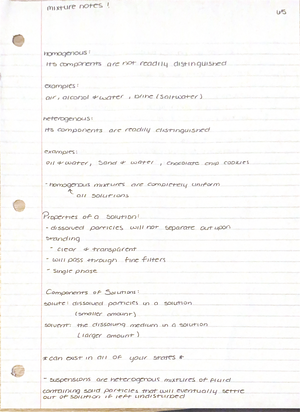 mixture notes!
homogenous:
its components are not readily distinguished
examples:
air, alcohol & water, brine (saltwater)
heterogenous:
its components are readily distinguished
examples:
oil & water, sand & water, chocolate chip cookies
- homogenous mixtures are completely uniform
all solutions
Properties of a solution:
- dissolved particles will not separate out upon
standing
- clear & transparent
- will pass through fine filters
- single phase
Components of Solutions:
solute: dissolved particles in a solution
(smaller amount)
solvent: the dissolving medium in a solution
(larger amount)
* can exist in all of your states *
- suspensions are heterogenous mixtures of fluid
containing solid particles that will eventually settle
out of solution if left undisturbed